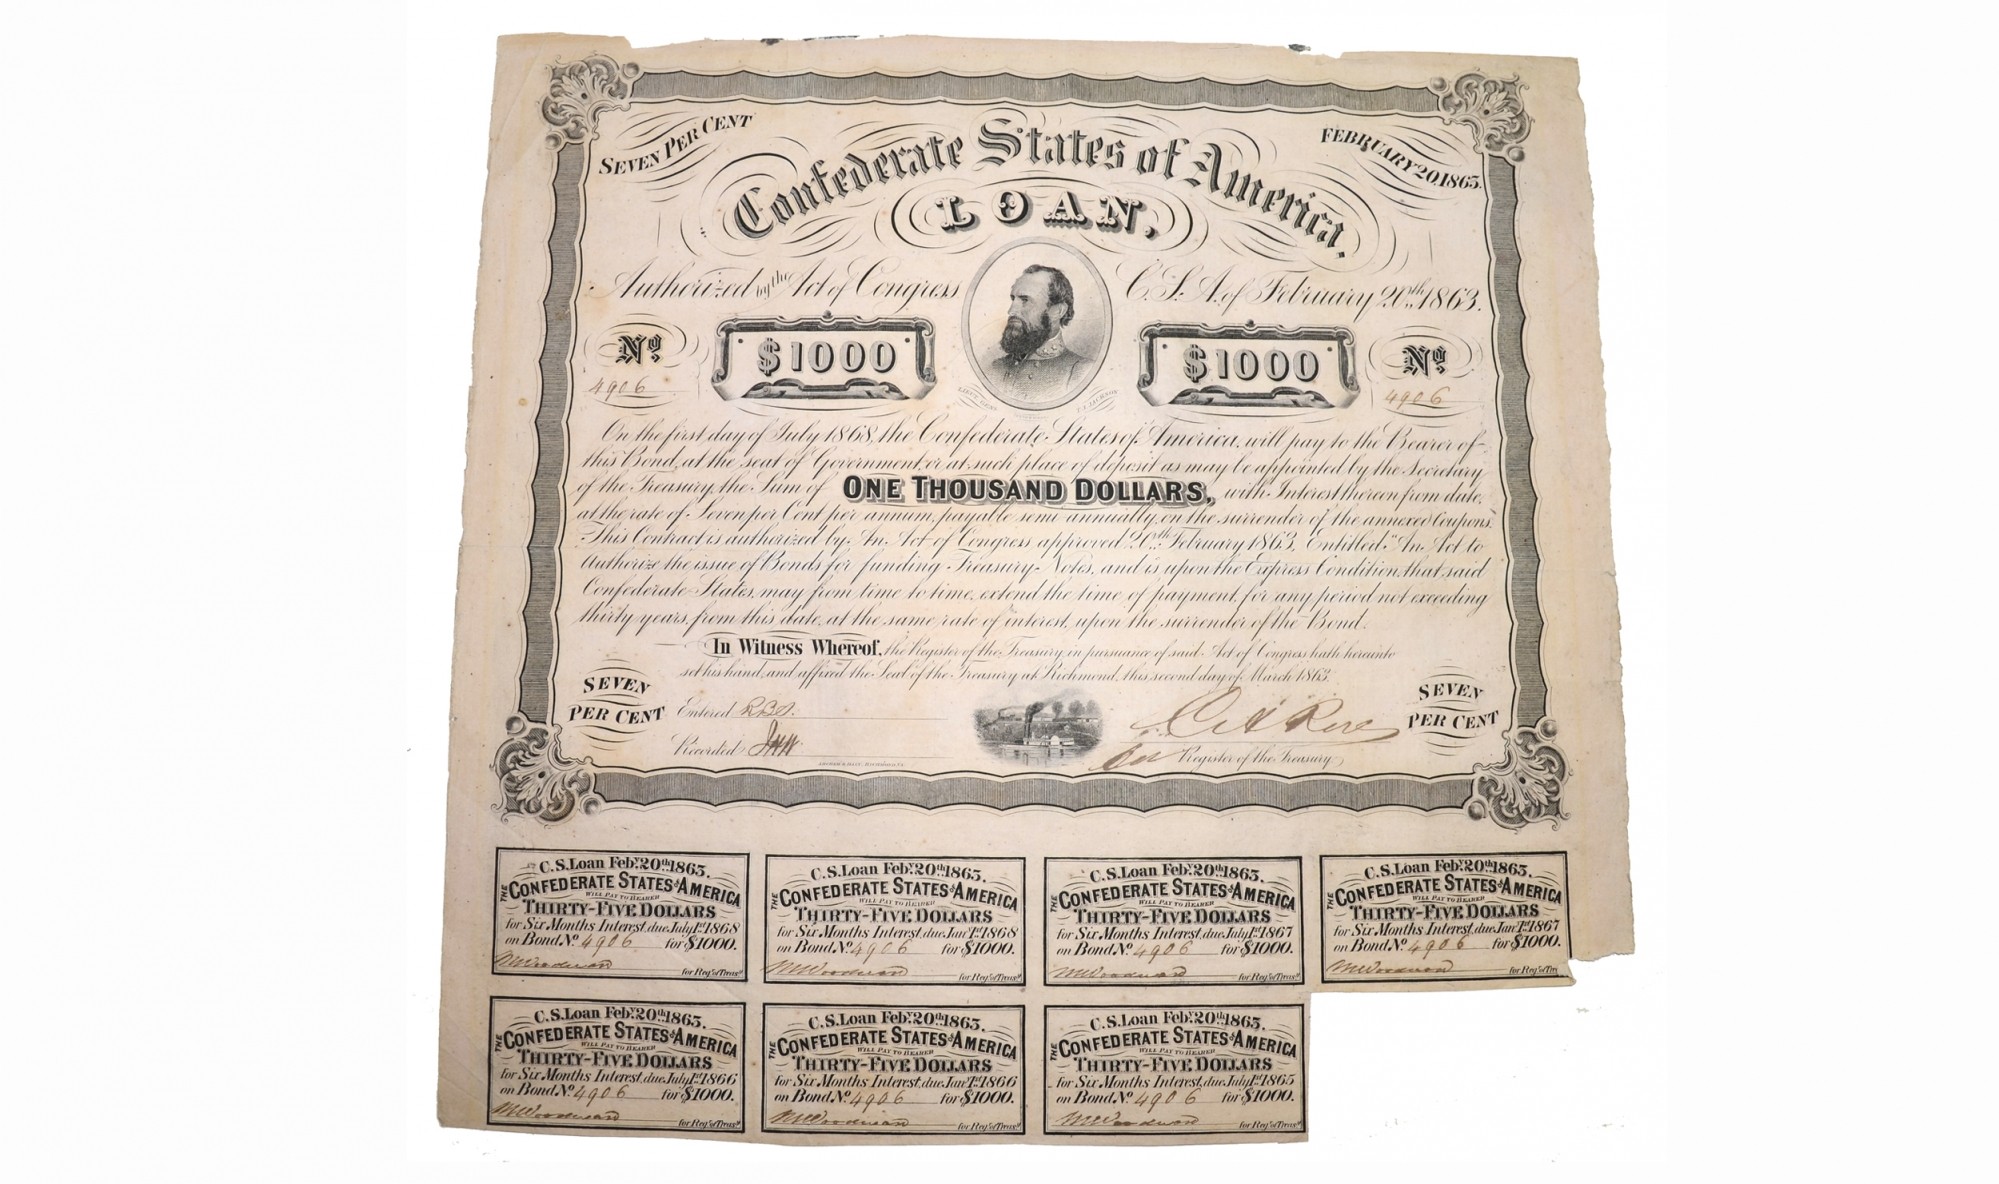 SEVEN PER CENT
FEBRUARY 20, 1863.
Confederate States of America,
LOAN,
Authorized by the Act of Congress C.S.A. of February 20th 1863.
No. $1000 $1000 No.
4906 4906
LIEUT. GENL. T. J. JACKSON
On the first day of July 1868, the Confederate States of America, will pay to the Bearer of
this Bond, at the seat of Government, or at such place of deposit as may be appointed by the Secretary
of the Treasury, the Sum of ONE THOUSAND DOLLARS, with Interest thereon from date,
at the rate of Seven per Cent per annum, payable semi annually, on the surrender of the annexed Coupons.
This Contract is authorized by An Act of Congress approved 20th February 1863, Entitled "An Act to
Authorize the issue of Bonds for funding Treasury Notes, and is upon the Express Condition, that said
Confederate States, may from time to time, extend the time of payment, for any period not exceeding
thirty years, from this date, at the same rate of interest, upon the surrender of the Bond.
In Witness Whereof, the Register of the Treasury in pursuance of said Act of Congress hath hereunto
set his hand, and affixed the Seal of the Treasury at Richmond, this second day of March 1863.
SEVEN PER CENT
Entered
Recorded
C A Rose
for Register of the Treasury
SEVEN PER CENT
C.S. Loan Feby. 20th 1863.
THE CONFEDERATE STATES OF AMERICA
WILL PAY TO BEARER
THIRTY-FIVE DOLLARS
for Six Months Interest, due July 1st 1868
on Bond No. 4906 for $1000.
for Reg. of Treasy.
C.S. Loan Feby. 20th 1863.
THE CONFEDERATE STATES OF AMERICA
WILL PAY TO BEARER
THIRTY-FIVE DOLLARS
for Six Months Interest, due Jany. 1st 1868
on Bond No. 4906 for $1000.
for Reg. of Treasy.
C.S. Loan Feby. 20th 1863.
THE CONFEDERATE STATES OF AMERICA
WILL PAY TO BEARER
THIRTY-FIVE DOLLARS
for Six Months Interest, due July 1st 1867
on Bond No. 4906 for $1000.
for Reg. of Treasy.
C.S. Loan Feby. 20th 1863.
THE CONFEDERATE STATES OF AMERICA
WILL PAY TO BEARER
THIRTY-FIVE DOLLARS
for Six Months Interest, due Jany. 1st 1867
on Bond No. 4906 for $1000.
for Reg. of Tre
C.S. Loan Feby. 20th 1863.
THE CONFEDERATE STATES OF AMERICA
WILL PAY TO BEARER
THIRTY-FIVE DOLLARS
for Six Months Interest, due July 1st 1866
on Bond No. 4906 for $1000.
for Reg. of Treasy.
C.S. Loan Feby. 20th 1863.
THE CONFEDERATE STATES OF AMERICA
WILL PAY TO BEARER
THIRTY-FIVE DOLLARS
for Six Months Interest, due Jany. 1st 1866
on Bond No. 4906 for $1000.
for Reg. of Treasy.
C.S. Loan Feby. 20th 1863.
THE CONFEDERATE STATES OF AMERICA
WILL PAY TO BEARER
THIRTY-FIVE DOLLARS
for Six Months Interest, due July 1st 1865
on Bond No. 4906 for $1000.
for Reg. of Treasy.